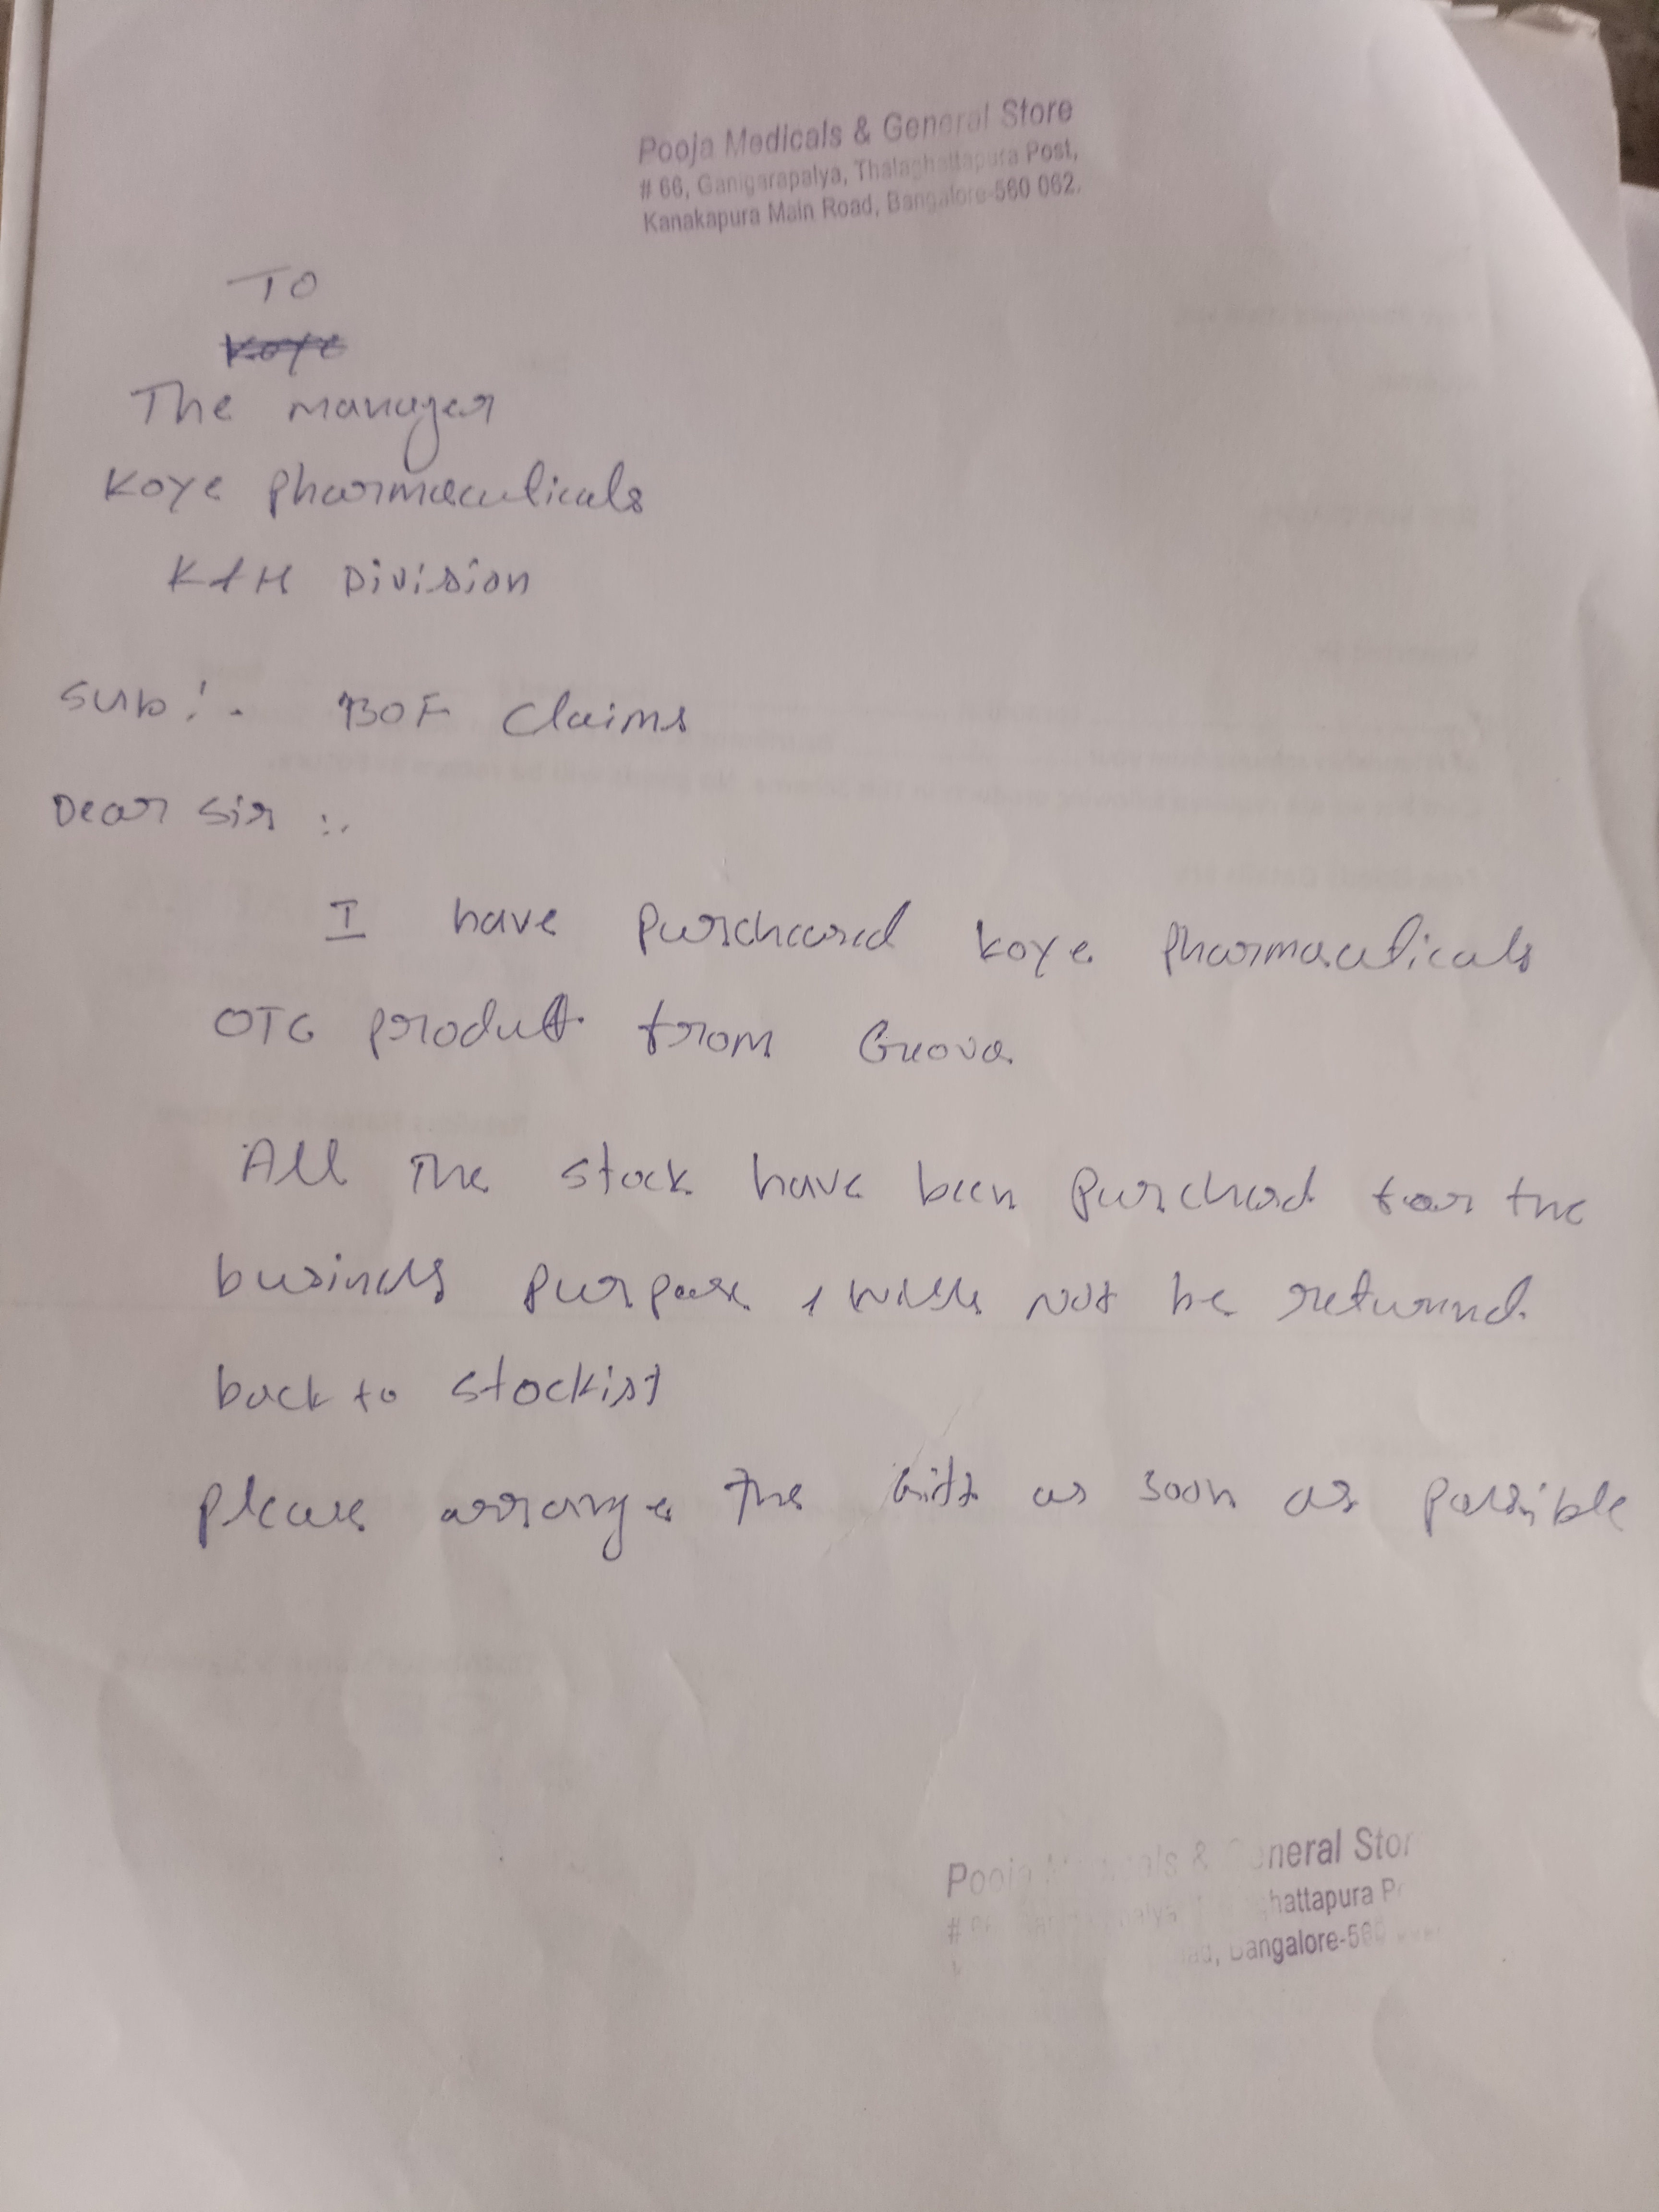 Pooja Medicals & General Store
# 66, Ganigarapalya, Thalaghattapura Post,
Kanakapura Main Road, Bangalore-560 062.
TO
Koye
The manager
Koye pharmaceuticals
K&H Division
Sub:- BOF Claims
Dear Sir :-
I have purchased koye pharmaceuticals
OTG product from
All The stock have been purchased for the
business purpose & will not be returned
back to stockist
please arrange the gift as soon as possible
Pooja & General Stor
hattapura P
Bangalore-560